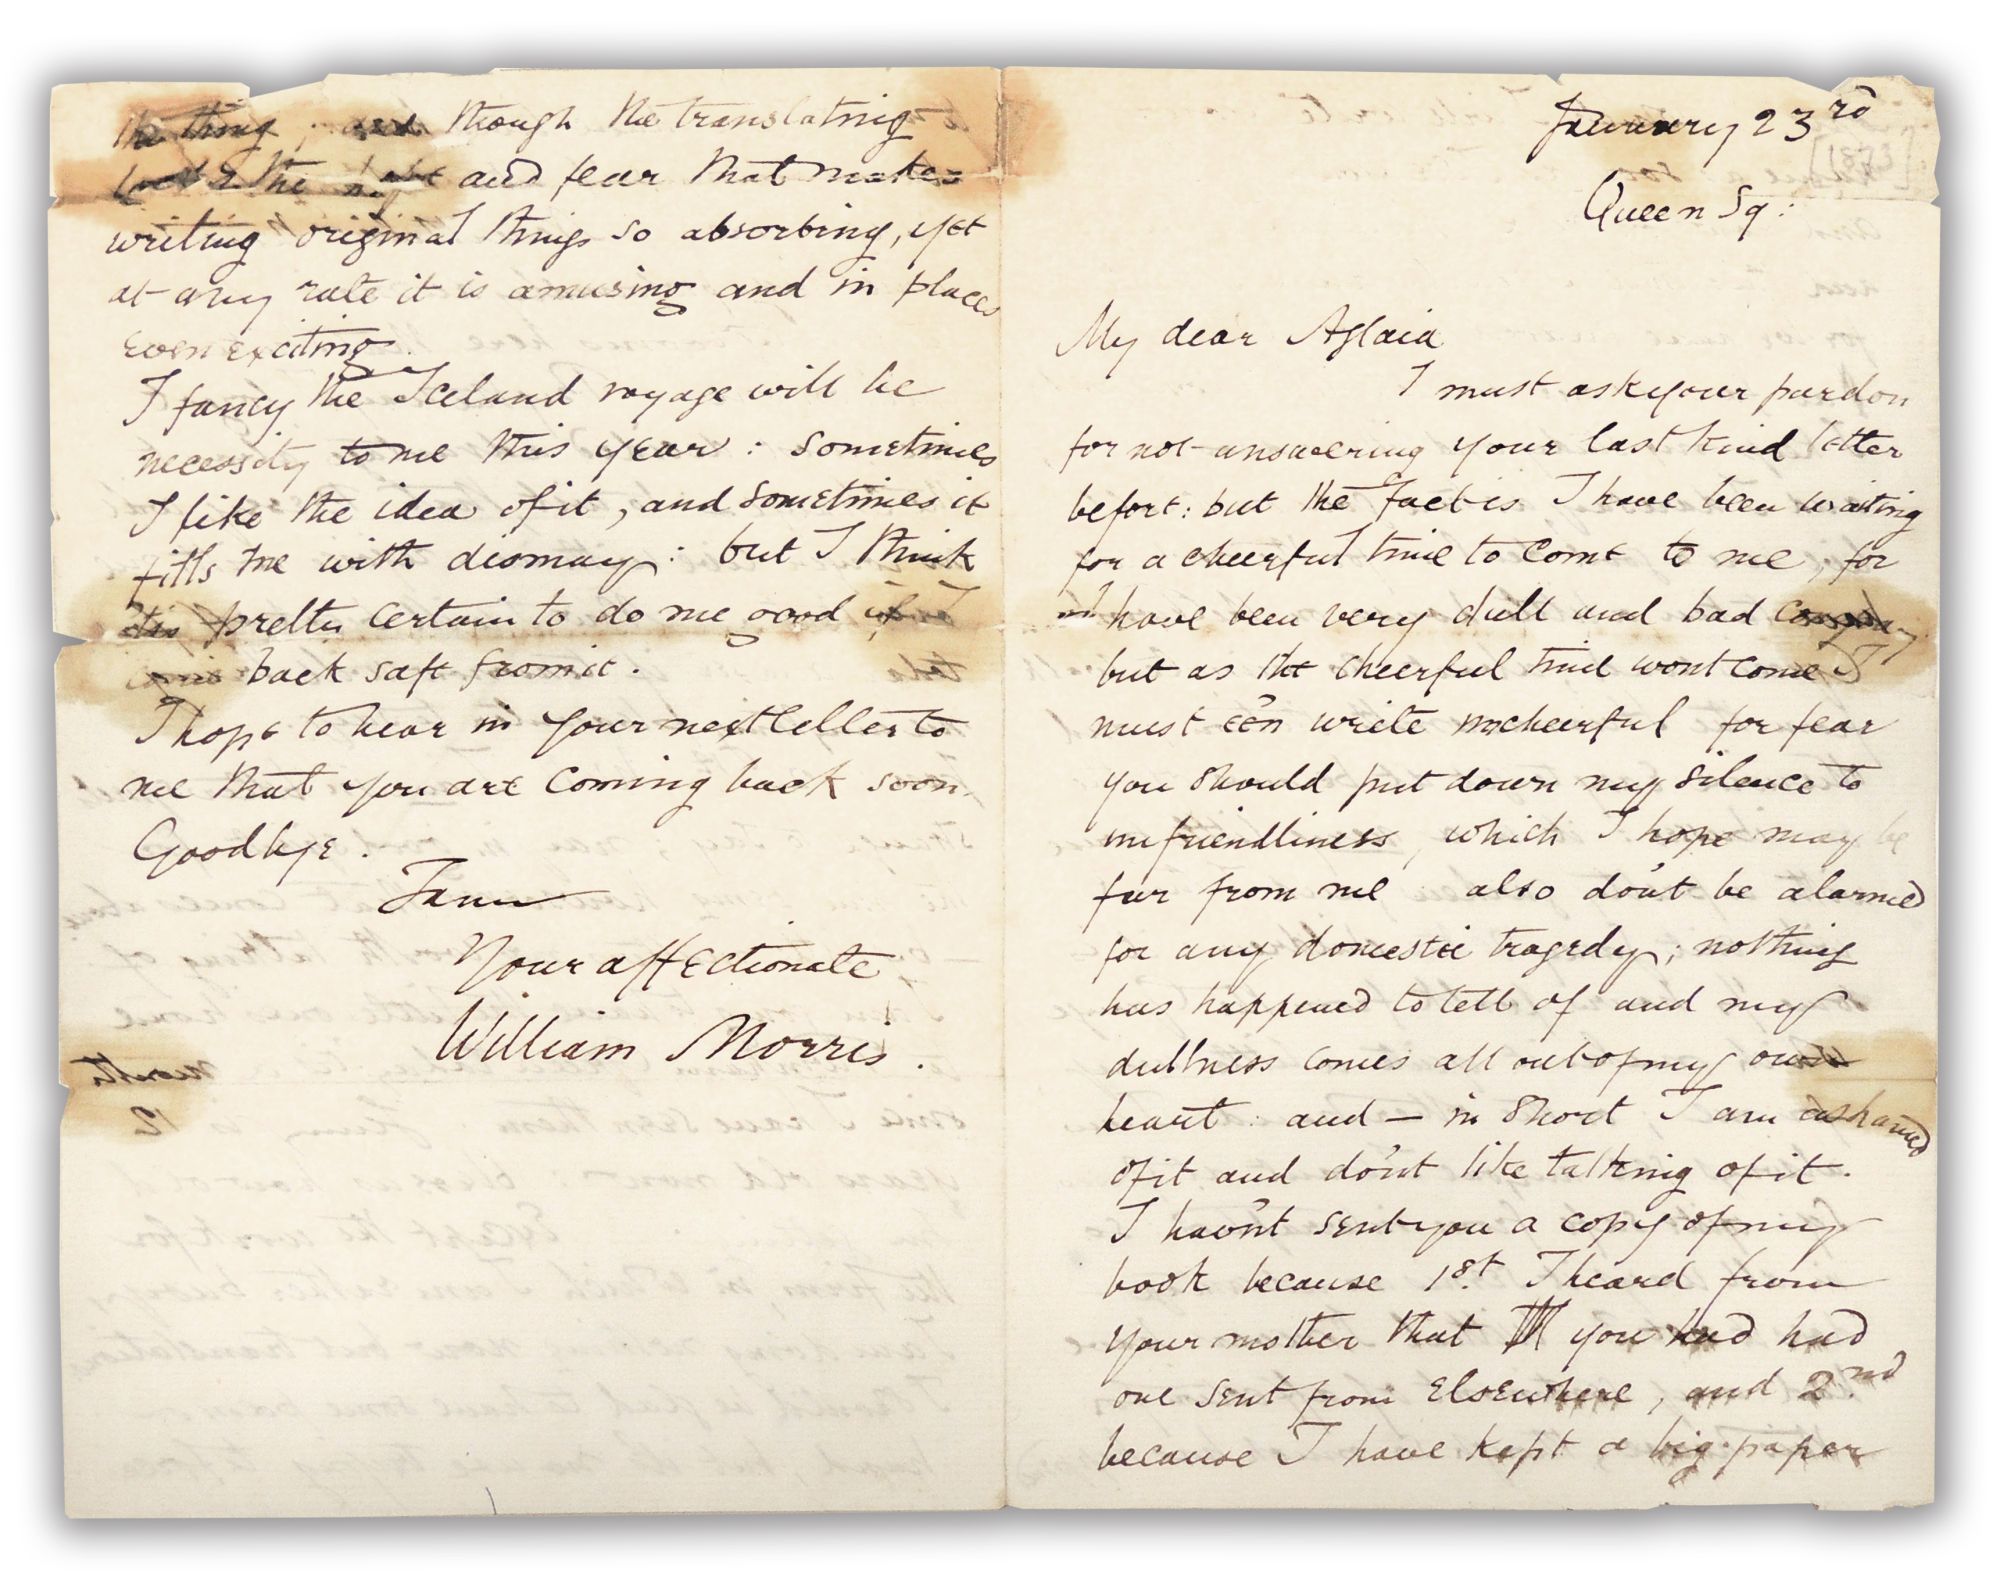 January 23rd
[1873]
Queen Sq:
My dear Aglaia
I must ask your pardon
for not answering your last kind letter
before: but the fact is I have been waiting
for a cheerful time to come to me, for
I have been very dull and bad company
but as the cheerful time wont come I
must e'en write uncheerful for fear
you should put down my silence to
unfriendliness, which I hope may be
far from me also don't be alarmed
for any domestic tragedy; nothing
has happened to tell of and my
dullness comes all out of my own
heart: and — in short I am ashamed
of it and don't like talking of it.
I hav'nt sent you a copy of my
book because 1st. I heard from
your mother that you had had
one sent from elsewhere, and 2nd
because I have kept a big-paper
the thing; and though the translating
the hope and fear that makes
writing original things so absorbing, yet
at any rate it is amusing and in places
even exciting.
I fancy the Iceland voyage will be
necessity to me this year: sometimes
I like the idea of it, and sometimes it
fills me with dismay: but I think
tis pretty certain to do me good if I
come back safe from it.
I hope to hear in your next letter to
me that you are coming back soon.
Goodbye.
I am
Your affectionate
William Morris.